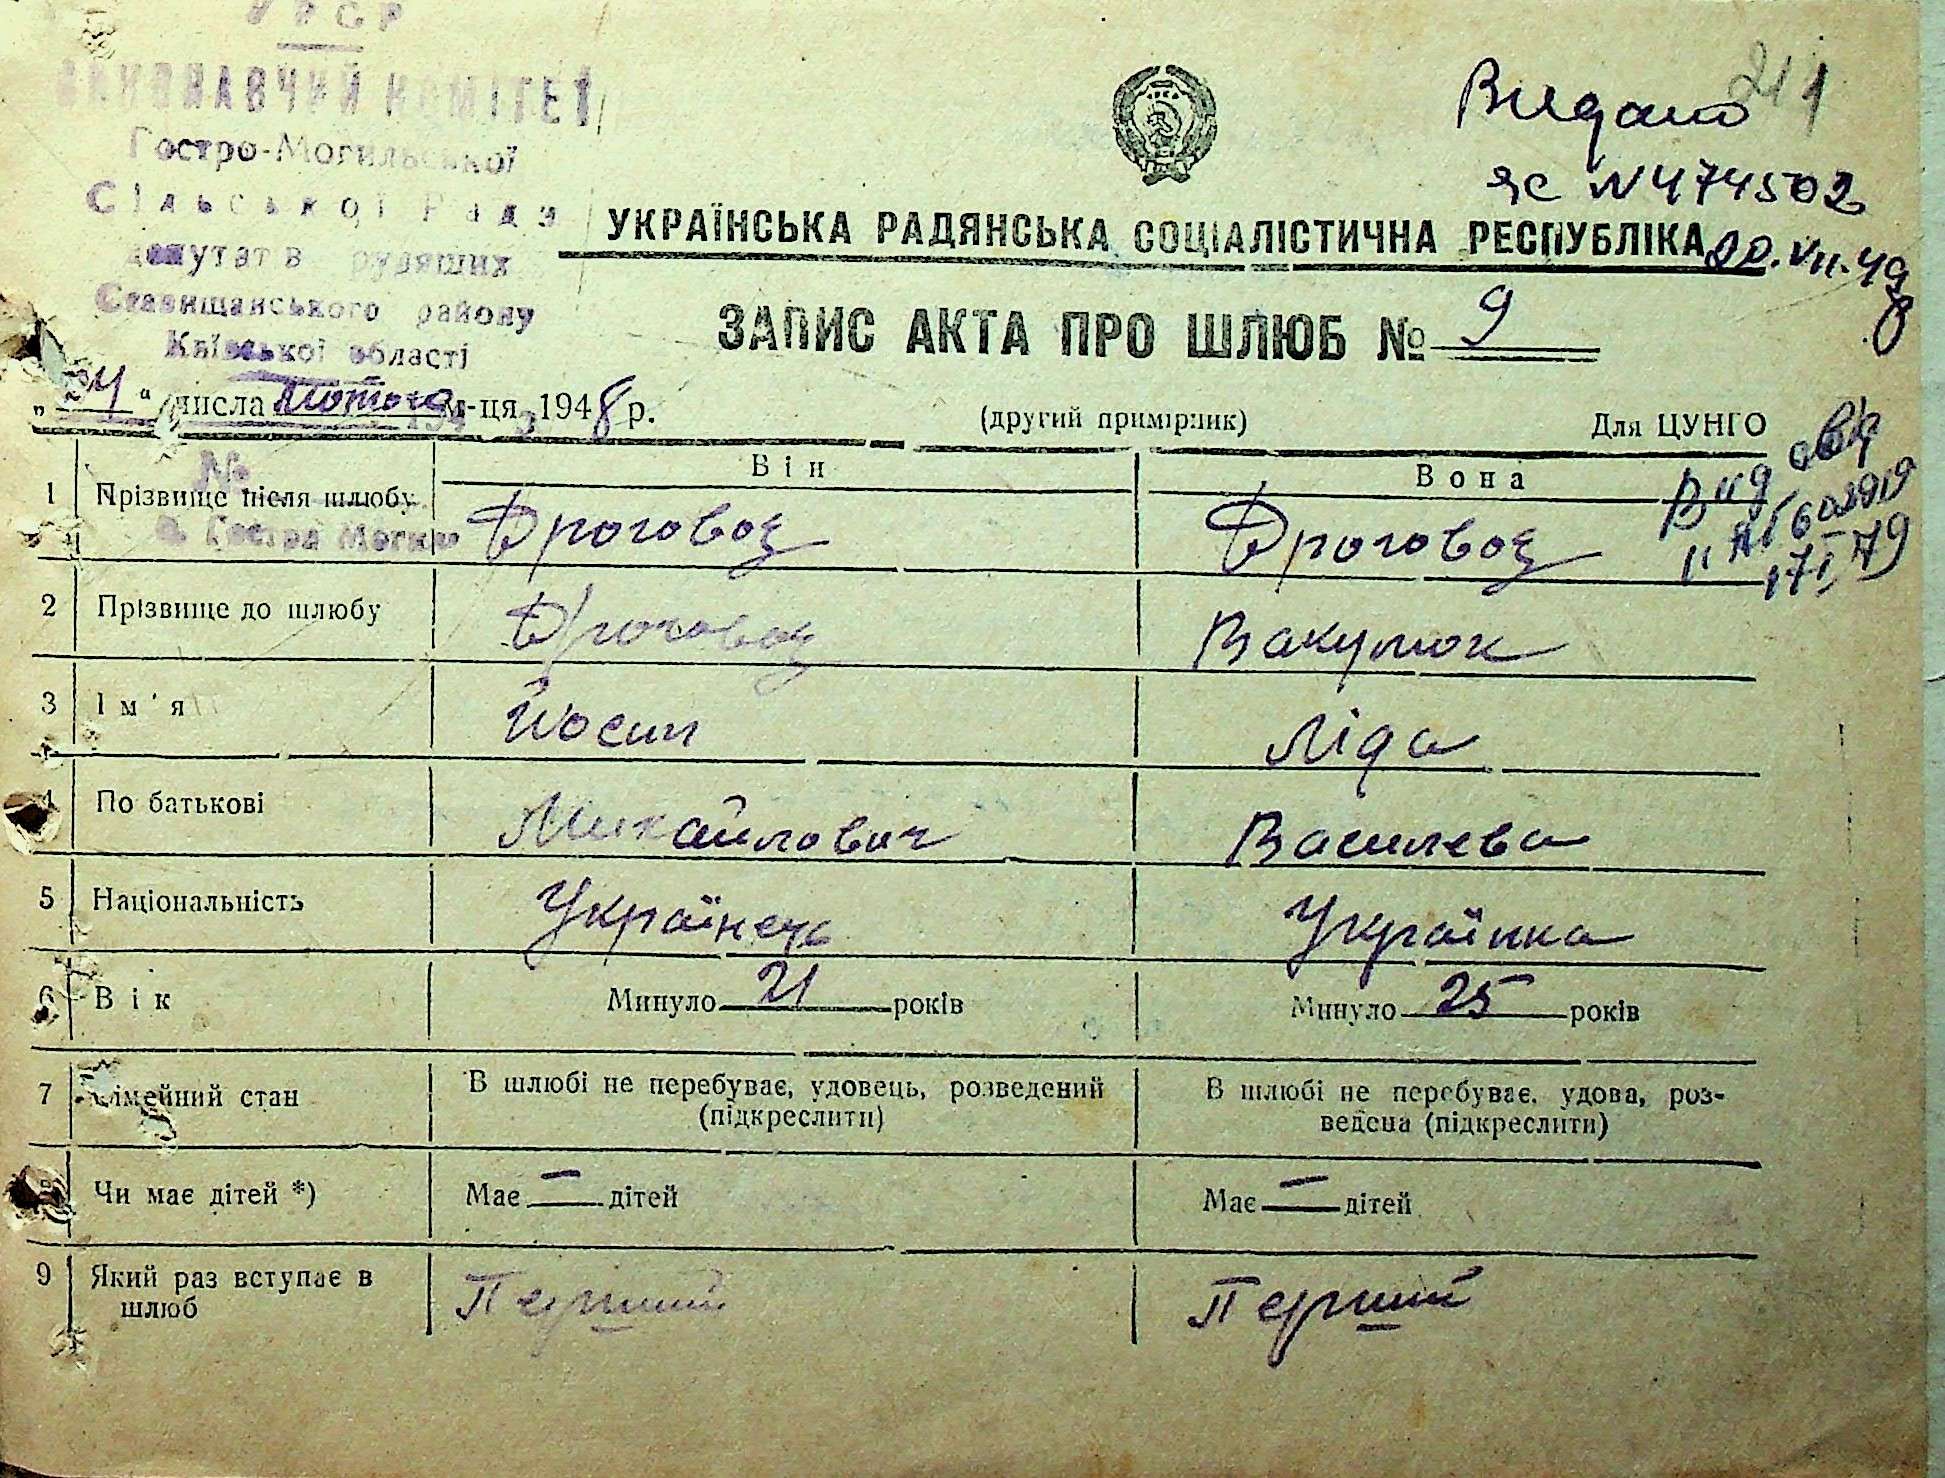 УРСР
ВИКОНАВЧИЙ КОМІТЕТ
Гостро-Могильської
Сільської Ради
депутатів трудящих
Ставищанського району
Київської області
№
с. Гостра Могила
211
Видано
ЯС №474502
22.VII.49
УКРАЇНСЬКА РАДЯНСЬКА СОЦІАЛІСТИЧНА РЕСПУБЛІКА
ЗАПИС АКТА ПРО ШЛЮБ № 9
" 24 " числа Лютого м-ця 1948 р.
(другий примірник)
Для ЦУНГО
Він
Вона
1 Прізвище після шлюбу Дроговоз Дроговоз
2 Прізвище до шлюбу Дроговоз Вакулюк
3 Ім'я Йосип Ліда
4 По батькові Михайлович Василева
5 Національність Українець Українка
6 Вік Минуло 21 років Минуло 25 років
7 Сімейний стан В шлюбі не перебуває, удовець, розведений
(підкреслити)
В шлюбі не перебуває, удова, роз-
ведена (підкреслити)
Чи має дітей *) Має — дітей Має — дітей
9 Який раз вступає в
шлюб
Перший Перший